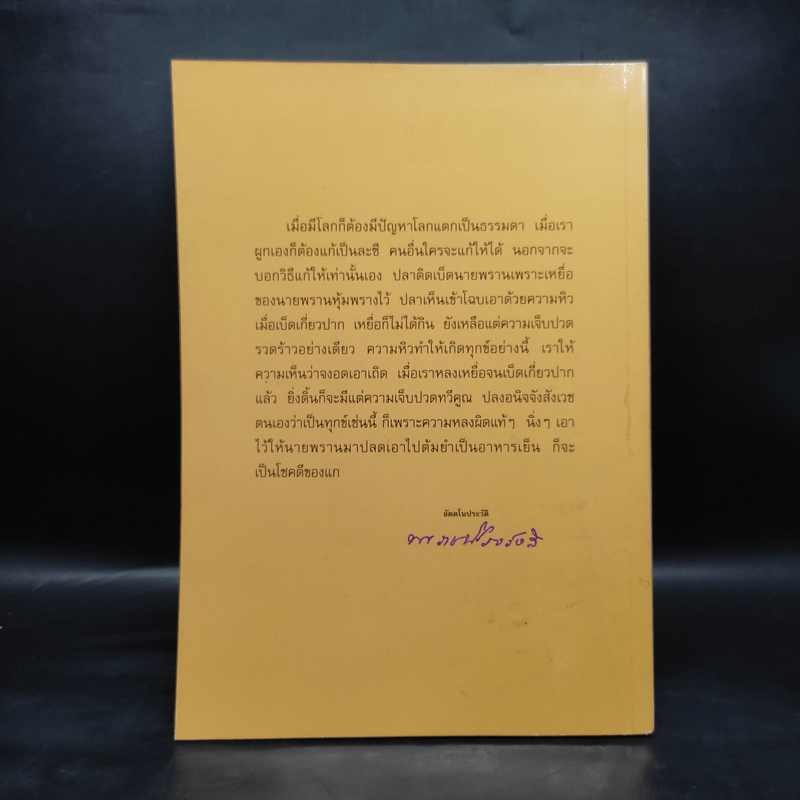 เมื่อมีโลกก็ต้องมีปัญหาโลกแตกเป็นธรรมดา เมื่อเรา
ผูกเองก็ต้องแก้เป็นละซี คนอื่นใครจะแก้ให้ได้ นอกจากจะ
บอกวิธีแก้ให้เท่านั้นเอง ปลาติดเบ็ดนายพรานเพราะเหยื่อ
ของนายพรานหุ้มพรางไว้ ปลาเห็นเข้าโฉบเอาด้วยความหิว
เมื่อเบ็ดเกี่ยวปาก เหยื่อก็ไม่ได้กิน ยังเหลือแต่ความเจ็บปวด
รวดร้าวอย่างเดียว ความหิวทำให้เกิดทุกข์อย่างนี้ เราให้
ความเห็นว่าจงอดเอาเถิด เมื่อเราหลงเหยื่อจนเบ็ดเกี่ยวปาก
แล้ว ยิ่งดิ้นก็จะมีแต่ความเจ็บปวดทวีคูณ ปลงอนิจจังสังเวช
ตนเองว่าเป็นทุกข์เช่นนี้ ก็เพราะความหลงผิดแท้ๆ นิ่งๆ เอา
ไว้ให้นายพรานมาปลดเอาไปต้มยำเป็นอาหารเย็น ก็จะ
เป็นโชคดีของแก
อัตตโนประวัติ